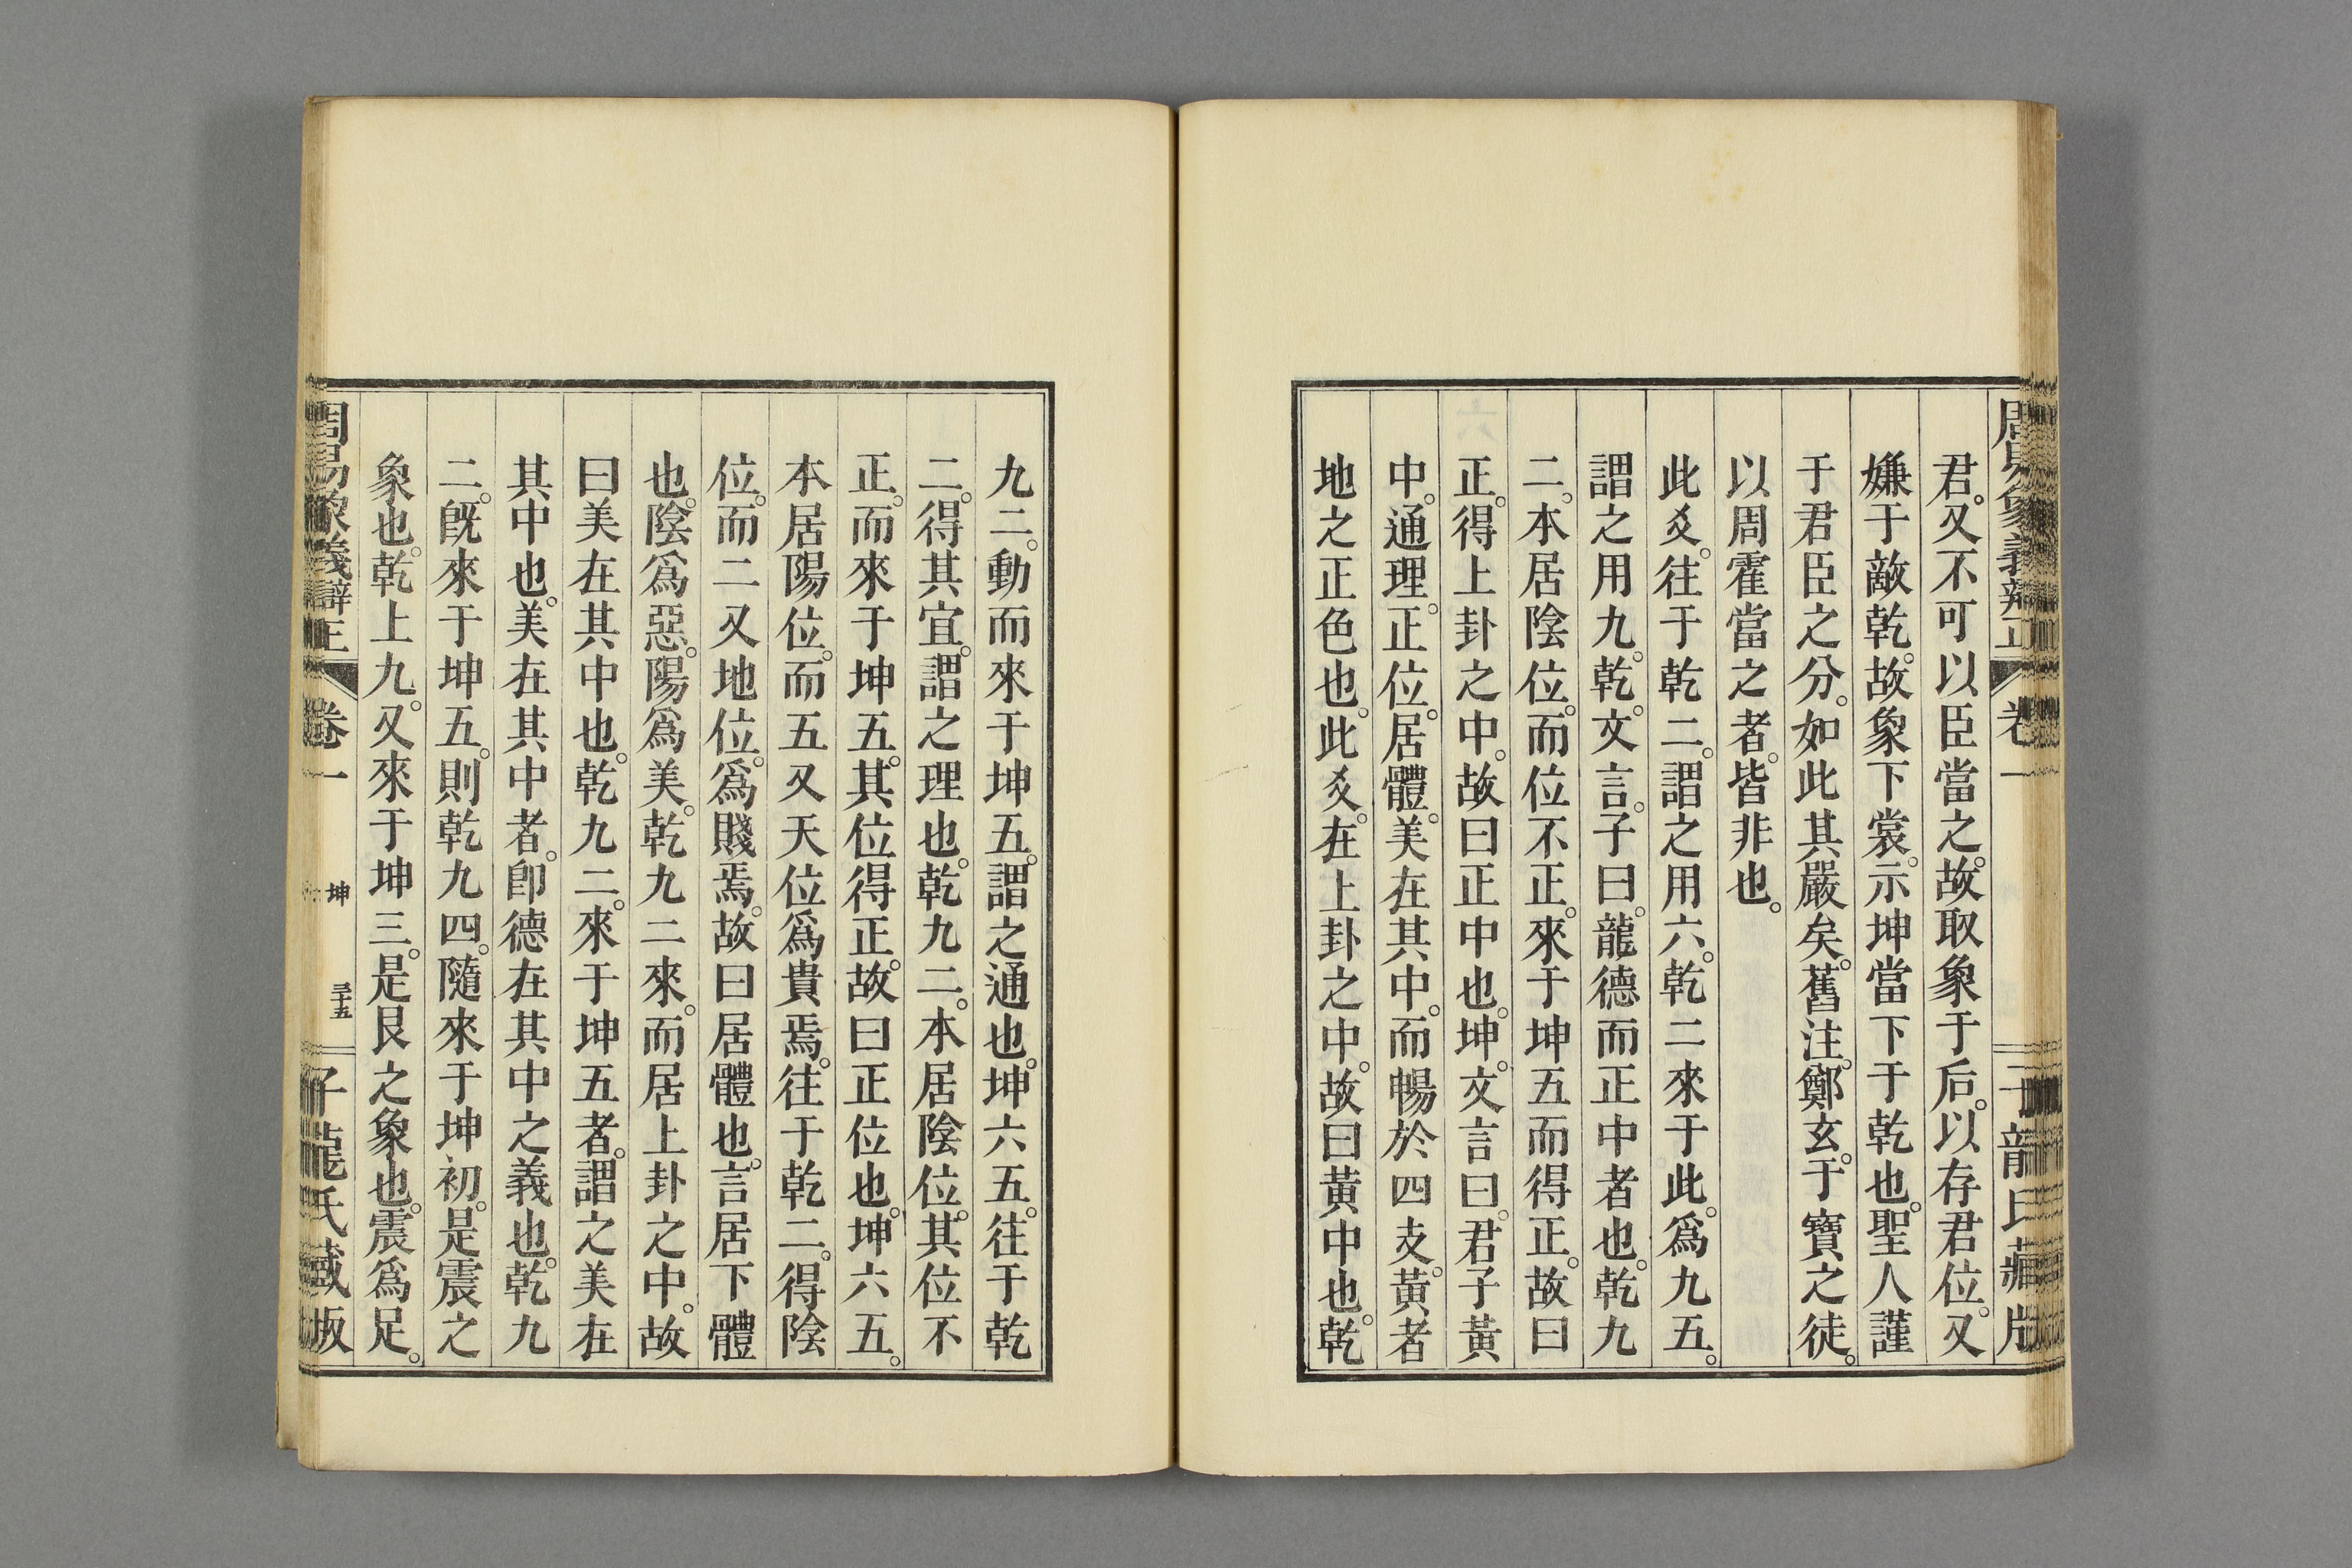 周易象義辯正 卷一 子龍氏藏版
君。又不可以臣當之。故取象于后。以存君位。又
嫌于敵乾。故象下裳。示坤當下于乾也。聖人謹
于君臣之分。如此其嚴矣。舊注。鄭玄。于寶之徒。
以周霍當之者。皆非也。
此爻。往于乾二。謂之用六。乾二來于此。爲九五。
謂之用九。乾。文言。子曰。龍德而正中者也。乾九
二。本居陰位。而位不正。來于坤五而得正。故曰
正。得上卦之中。故曰正中也。坤。文言曰。君子黃
中。通理。正位。居體。美在其中。而暢於四支。黃者
地之正色也。此爻。在上卦之中。故曰黃中也。乾
九二。動而來于坤五。謂之通也。坤六五。往于乾
二。得其宜。謂之理也。乾九二。本居陰位。其位不
正。而來于坤五。其位得正。故曰正位也。坤六五。
本居陽位。而五又天位爲貴焉。往于乾二。得陰
位。而二又地位。爲賤焉。故曰居體也。言居下體
也。陰爲惡。陽爲美。乾九二來。而居上卦之中。故
曰美在其中也。乾九二。來于坤五者。謂之美在
其中也。美在其中者。卽德在其中之義也。乾九
二。旣來于坤五。則乾九四。隨來于坤初。是震之
象也。乾上九。又來于坤三。是艮之象也。震爲足。
周易象義辯正 卷一 坤 三十五 子龍氏藏版